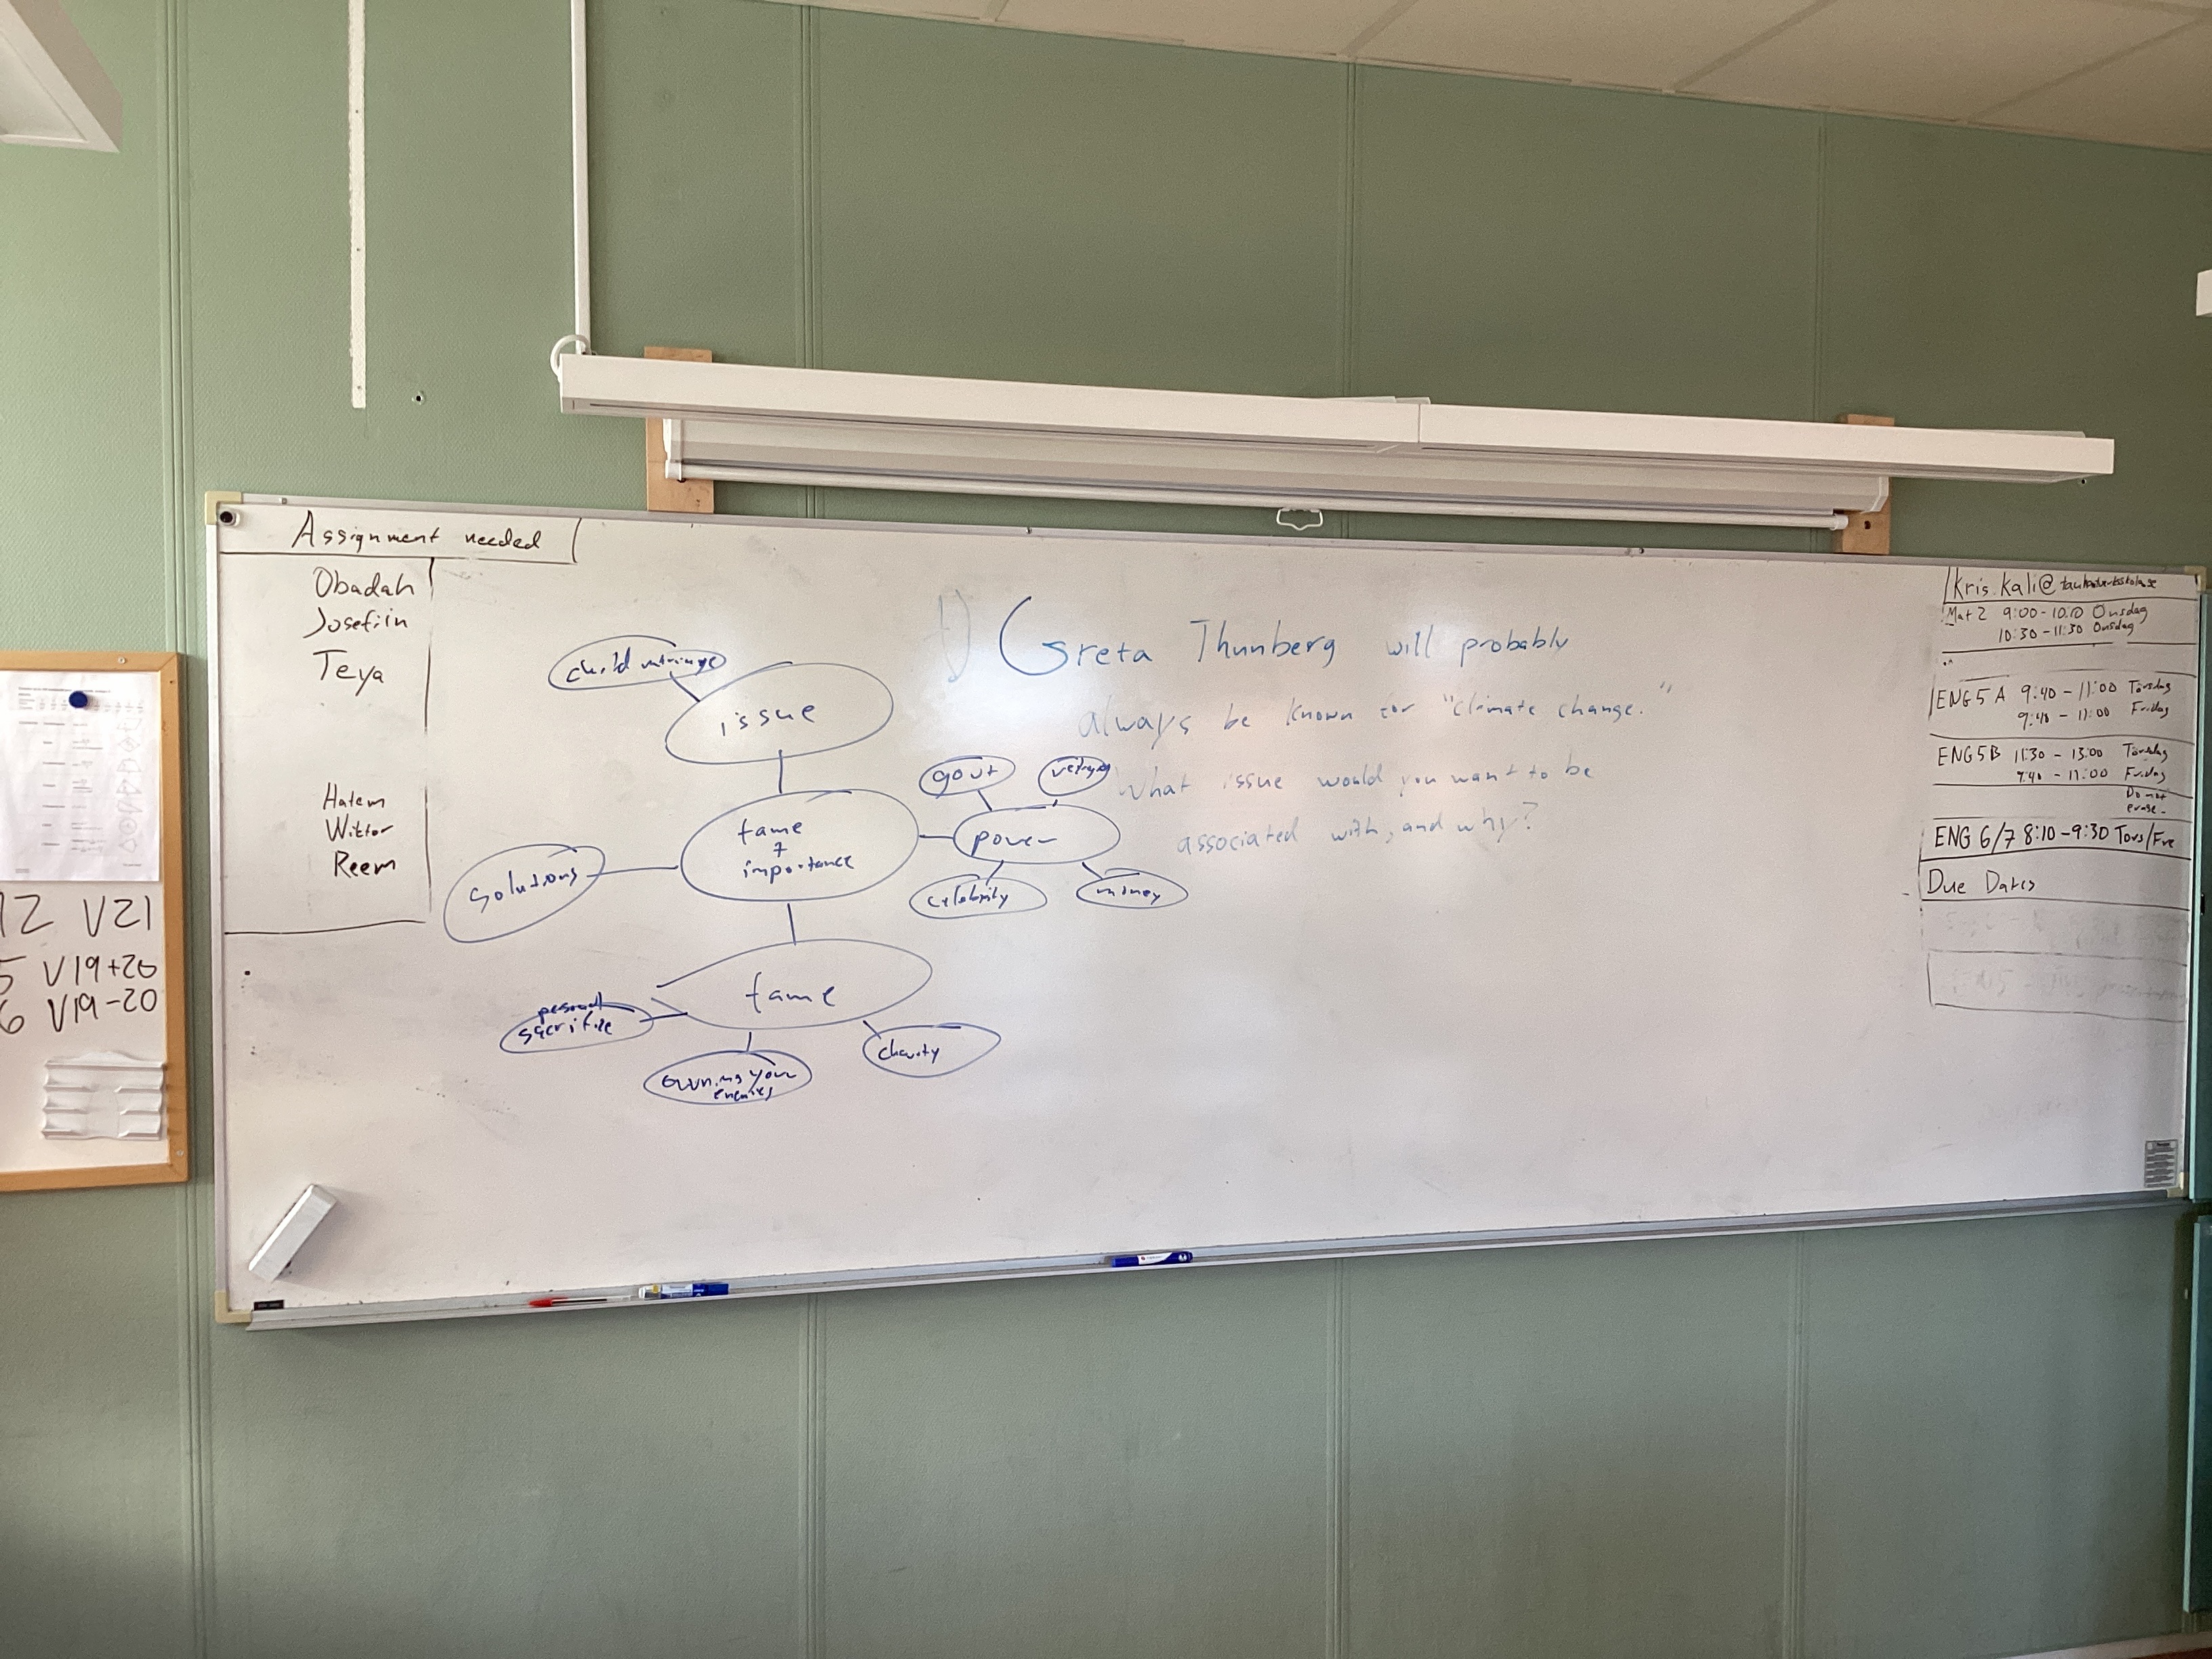 Assignment needed
Obadah
Josefiin
Teya
Hatem
Wiktor
Reem
12 V21
5 V19+20
6 V19-20
1) Greta Thunberg will probably
always be known for "climate change."
What issue would you want to be
associated with, and why?
issue
fame
+
importance
power
gov't
celebrity
money
solutions
fame
personal
sacrifice
owning your
enemies
charity
Kris.Kali@
Mat 2 9:00-10:10 Onsdag
10:30-11:30 Onsdag
ENG 5 A 9:40-11:00 Torsdag
9:40-11:00 Friday
ENG 5B 11:30-13:00 Torsdag
9:40-11:00 Friday
Do not
erase
ENG 6/7 8:10-9:30 Tors/Fre
Due Dates